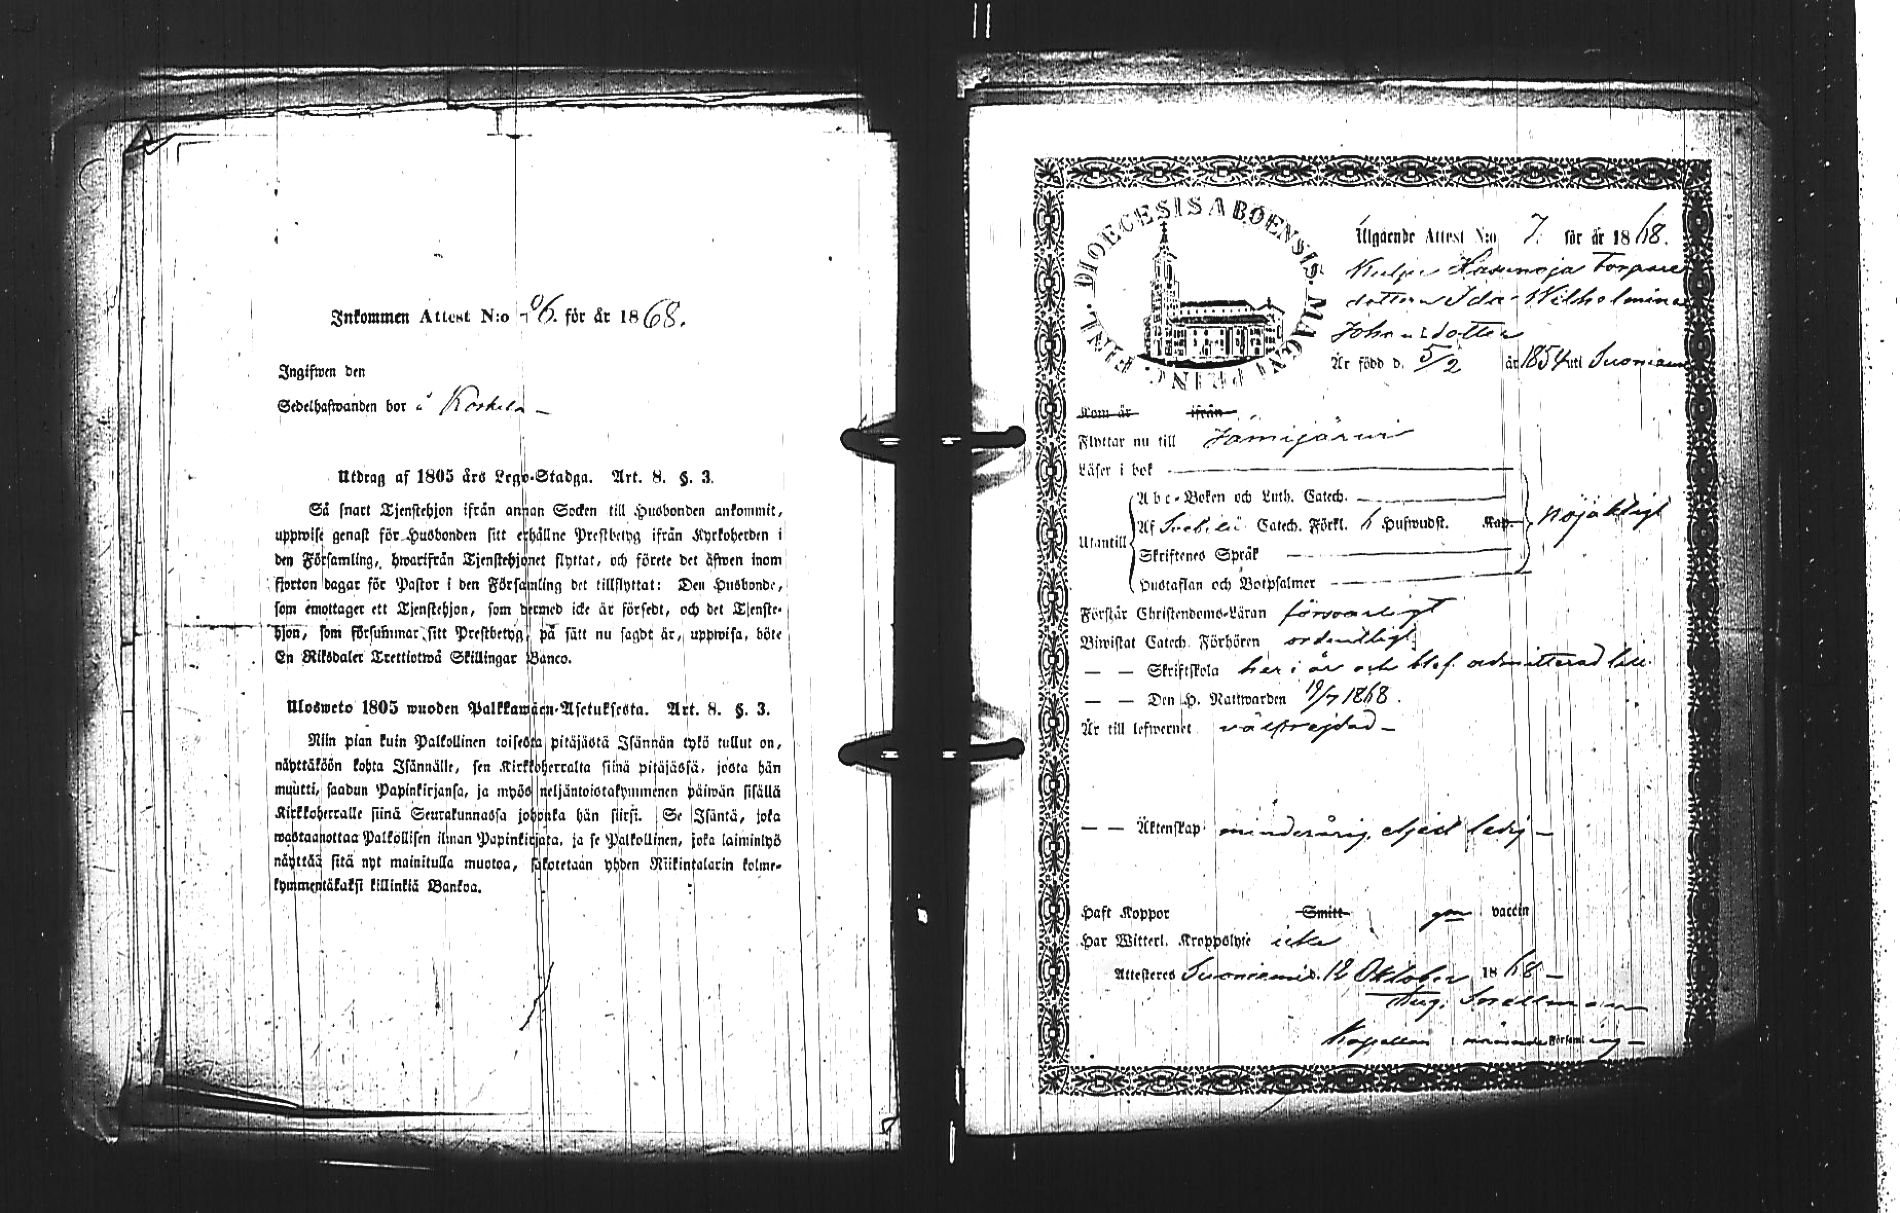 Inkommen Attest N:o 96. för år 1868.
Ingifwen den
Sedelhafwanden bor å Koskela –
Utdrag af 1805 års Lego-Stadga. Art. 8. §. 3.
Så snart Tjenstehjon ifrån annan Socken till Husbonden ankommit,
uppwise genast för Husbonden sitt erhållne Prestbetyg ifrån Kyrkoherden i
den Församling, hwarifrån Tjenstehjonet flyttat, och förete det äfwen inom
fjorton dagar för Pastor i den Församling det tillflyttat: Den Husbonde,
som emottager ett Tjenstehjon, som dermed icke är försedt, och det Tjenste-
hjon, som försummar sitt Prestbetyg, på sätt nu sagdt är, uppwisa, böte
En Riksdaler Trettiotwå Skillingar Banco.
Ulosweto 1805 wuoden Palkkawäen-Asetuksesta. Art. 8. §. 3.
Niin pian kuin Palkollinen toisesta pitäjästä Isännän tykö tullut on,
näyttäköön kohta Isännälle, sen Kirkkoherralta siinä pitäjässä, josta hän
muutti, saadun Papinkirjansa, ja myös neljäntoistakymmenen päiwän sisällä
Kirkkoherralle siinä Seurakunnassa johonka hän siirsi. Se Isäntä, joka
wastaanottaa Palkollisen ilman Papinkirjata, ja se Palkollinen, joka laiminlyö
näyttää sitä nyt mainitulla muotoa, sakotetaan yhden Riikintalarin kolme-
kymmentäkaksi killinkiä Bankoa.
DIOECESIS ABOENSIS. MAGNI PRINC. FINL.
Utgående Attest N:o 7. för år 1868.
Torpare
dottern Ida Wilhelmina
Johansdotter
Är född d. 5/2 år 1854 uti Suoniemi
Kom år ifrån
Flyttar nu till Jämijärwi
Läser i bok
Abc-Boken och Luth. Catech.
Af Catech. Förkl. Hufwudst. Kap.
nöjaktigt
Utantill
Skriftenes Språk
Hustaflan och Botpsalmer
Förstår Christendoms-Läran försvarligt
Biwistat Catech. Förhören ordentligt
— — Skriftskola här i år och blef admitterad till
— — Den H. Nattwarden 19/7 1868.
Är till lefwernet välfrejdad –
— — Äktenskap minderårig, alltjed ledig –
Haft Koppor Smitt gm vaccin
Har Witterl. Kroppslyte icke
Attesteras Suoniemi d. 12 Oktober 1868 –
Aug.
Kapellan i nämnde Församling –